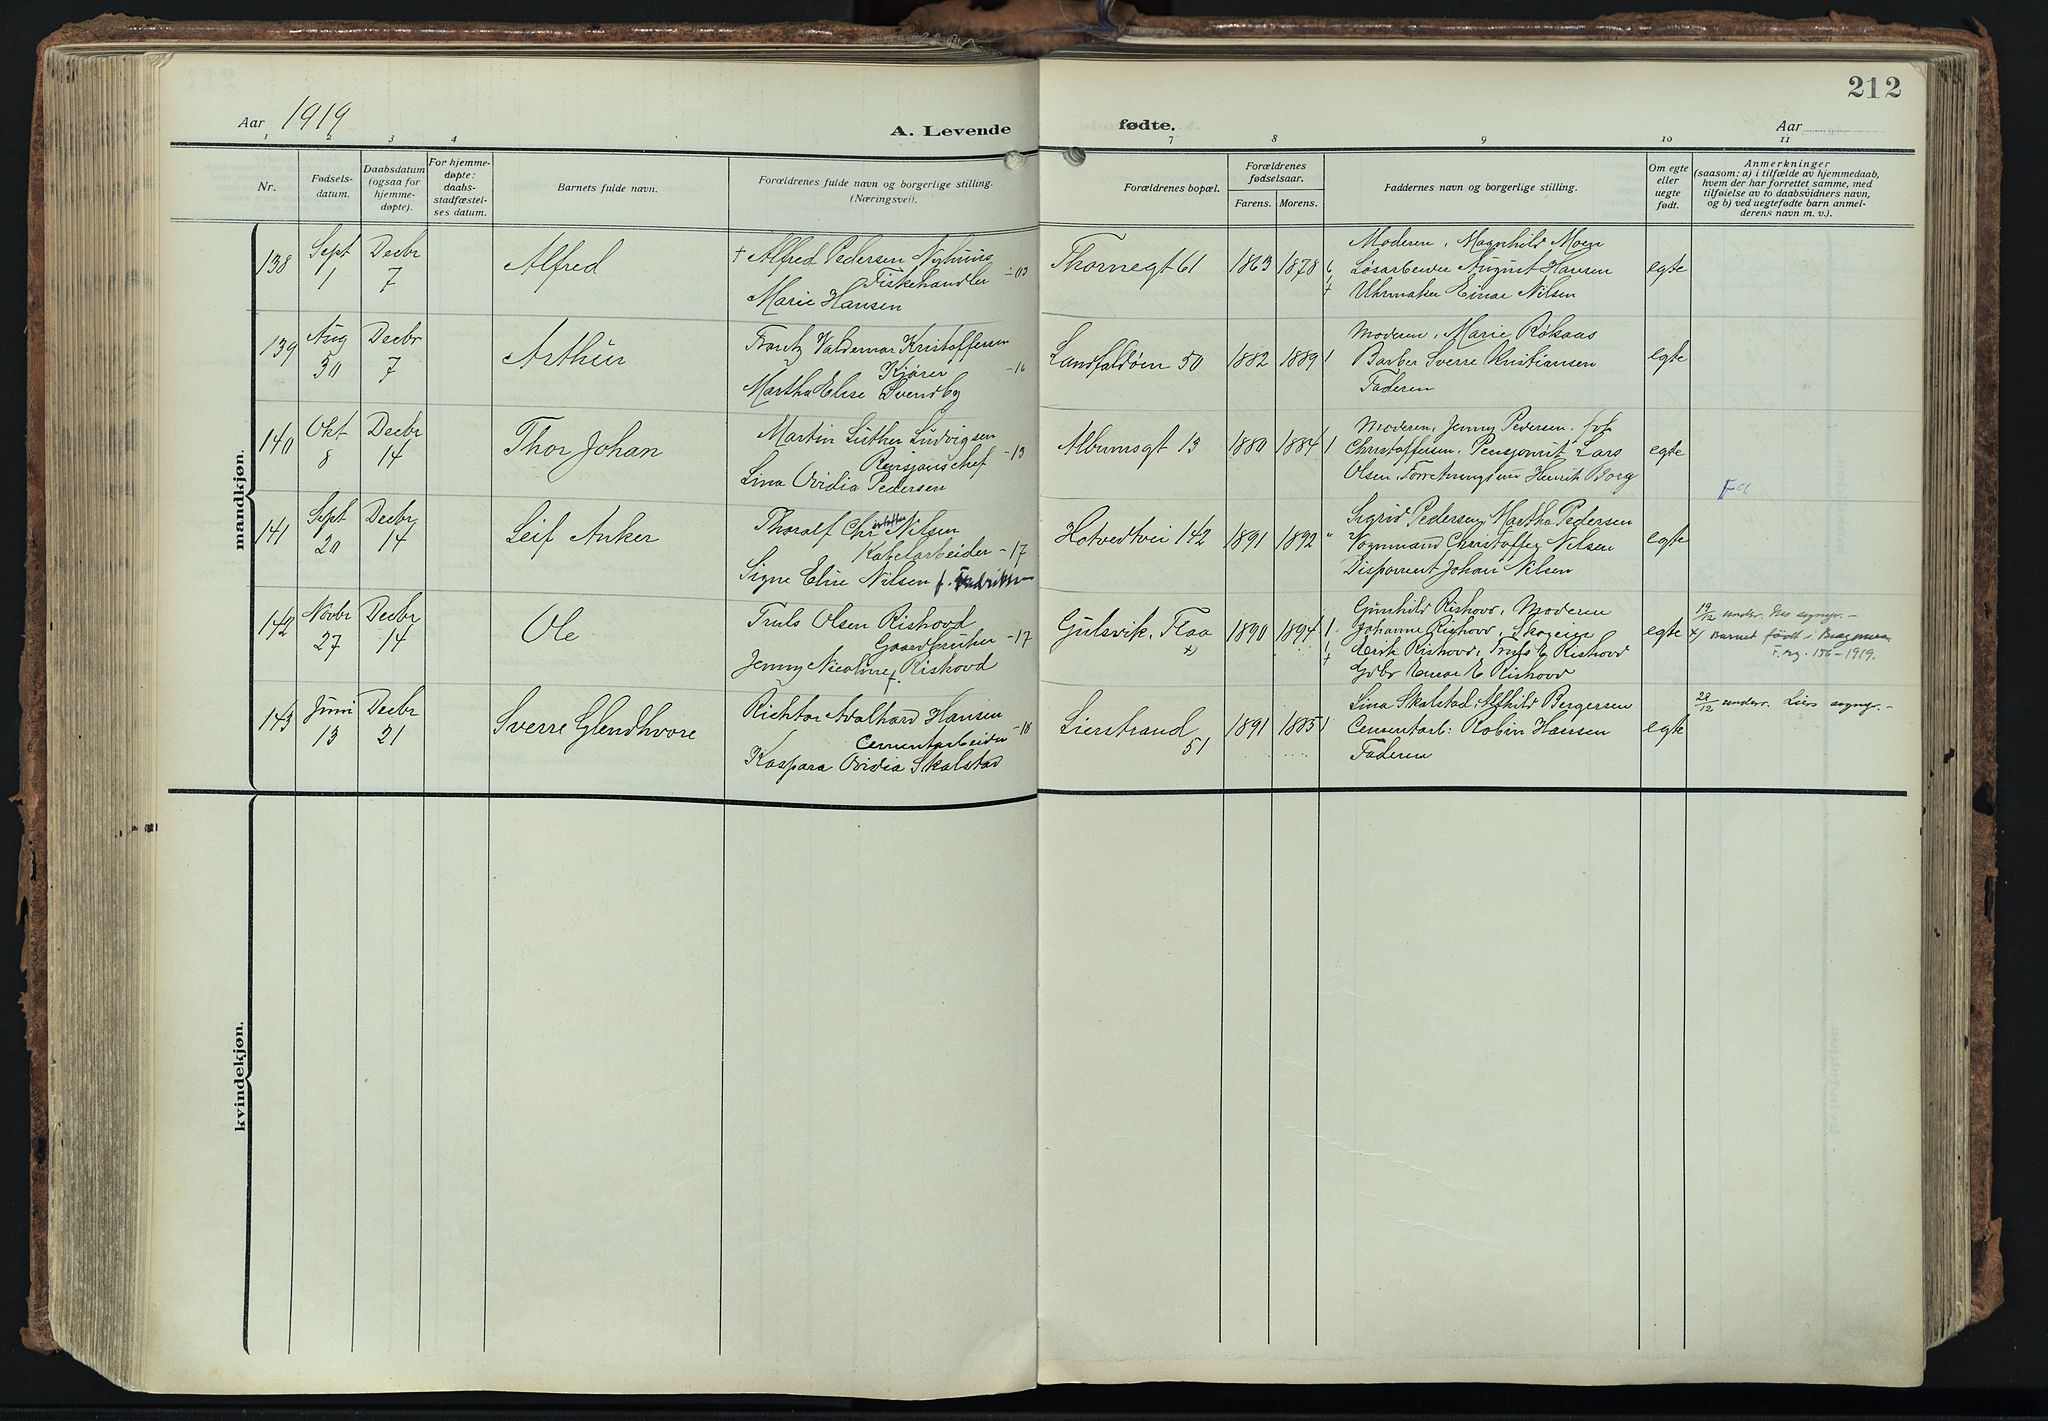 212
Aar 1919
A. Levende
fødte.
Aar
1 2 3 4 7 8 9 10 11
Nr.
Fødselsdatum.
Daabsdatum (ogsaa for hjemmedøpte).
For hjemmedøpte: daabsstadfæstelses datum.
Barnets fulde navn.
Forældrenes fulde navn og borgerlige stilling. (Næringsvei).
Forældrenes bopæl.
Forældrenes fødselsaar.
Farens. Morens.
Faddernes navn og borgerlige stilling.
Om egte eller uegte født.
Anmerkninger
(saasom: a) i tilfælde av hjemmedaab,
hvem der har forrettet samme, med
tilføielse av to daabsvidners navn,
og b) ved uegtefødte barn anmelderens navn m. v.).
mandkjøn.
138 Sept 1 Decbr 7 Alfred
+ Alfred Pedersen Nyhuus
Fiskehandler -03
Marie Hansen
Thornegt 61 1863 1878
Moderen, Magnhild Moen
Løsarbeider August Hansen
Uhrmaker Einar Nilsen
egte
139 Aug 30 Decbr 7 Arthur
Frantz Valdemar Kristoffersen
Kjører -16
Martha Elise Svendby
Landfaldøen 50 1882 1889 1
Moderen, Marie Røkaas
Barber Sverre Kristiansen
Faderen
egte
140 Okt 8 Decbr 14 Thor Johan
Martin Luther Ludvigsen
Revisjonschef -13
Lina Ovidia Pedersen
Albumsgt 13 1880 1884 1
Moderen, Jenny Pedersen, frk
Christoffersen, Pensjonist Lars
Olsen, Forretningsm Henrik Borg
egte
141 Sept 20 Decbr 14 Leif Anker
Thoralf Chr Nilsen
Kabelarbeider -17
Signe Elise Nilsen f. Fredriksen
Hotvedtvei 142 1891 1892 "
Sigrid Pedersen, Martha Pedersen
Vognmand Christoffer Nilsen
Disponent Johan Nilsen
egte
142 Novbr 27 Decbr 14 Ole
Truls Olsen Rishovd
Gaardbruker -17
Jenny Nicoline f. Rishovd
Gulsvik, Flaa x) 1890 1894
Gunhild Rishovd, Moderen
Johanne Rishovd, Skogeier
Erik Rishovd, Truls E Rishovd
Gdbr Einar E Rishovd
egte
19/12 underr. Nes sognepr. -
x) Barnet født i Bragernes
F. rg. 156-1919.
143 Juni 13 Decbr 21 Sverre Glendhvore
Richtor Adalhard Hansen
Cementarbeider -18
Kaspara Ovidia Skalstad
Lierstrand 51 1891 1885 1
Lina Skalstad, Alfhild Bergersen
Cementarb: Robin Hansen
Faderen
egte
23/12 underr. Liers sognepr. -
kvindekjøn.